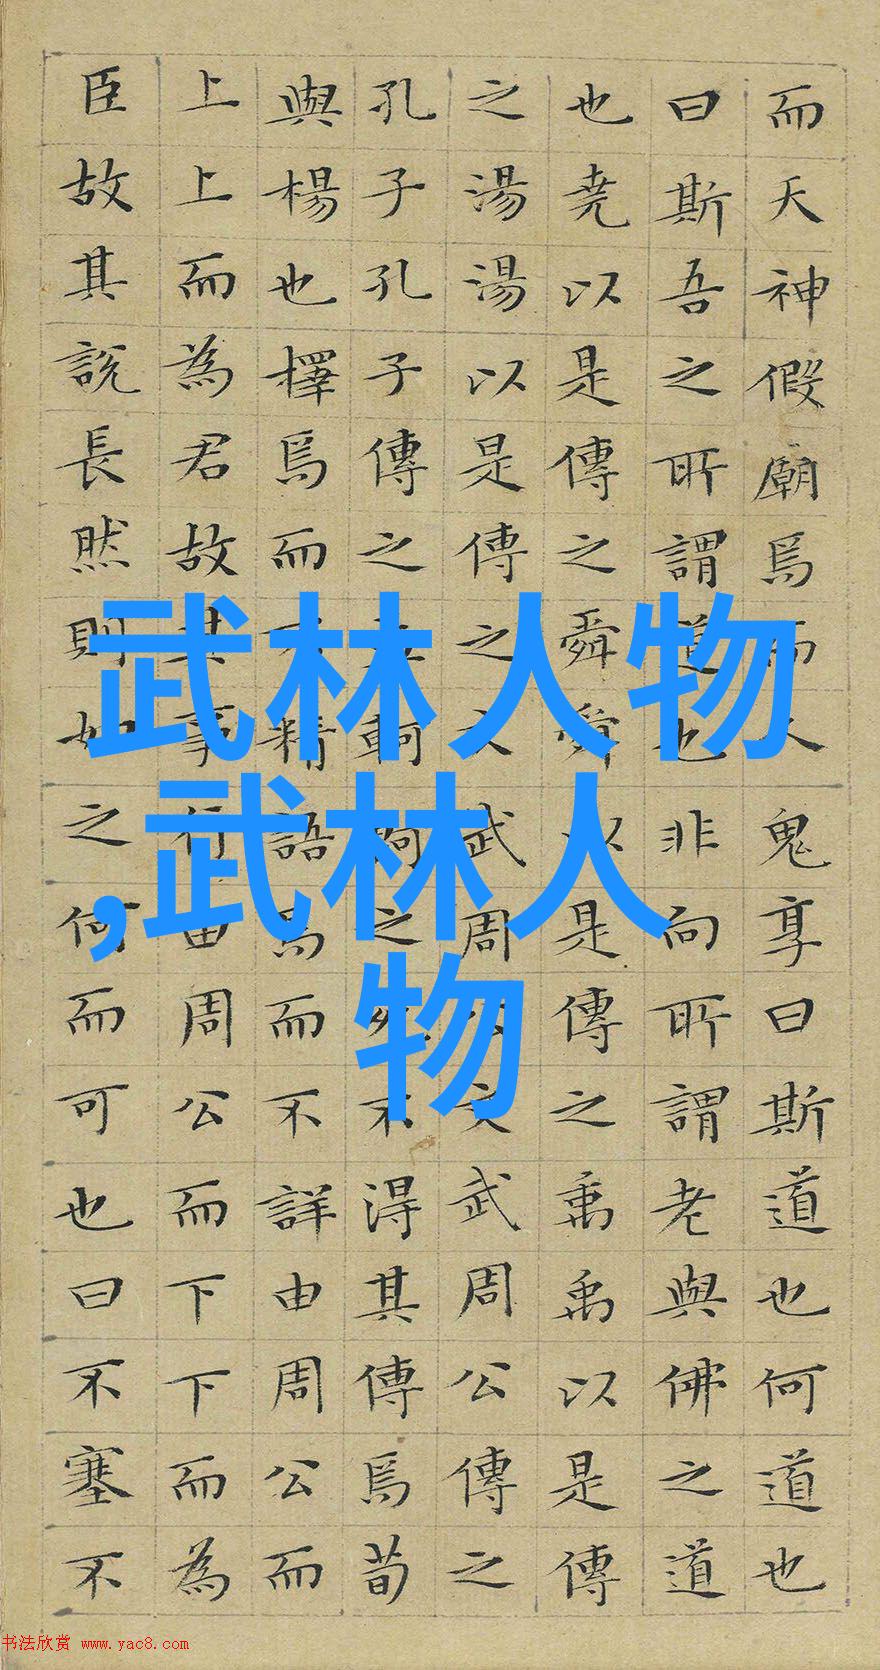 而天神假廟焉而人鬼享曰斯道也何道也
曰斯吾之所謂道也非向所謂老與佛之道
也堯以是傳之舜舜以是傳之禹禹以是傳
之湯湯以是傳之文武周公文武周公傳之
孔子孔子傳之孟軻軻之死不得其傳焉荀
與楊也擇焉而不精語焉而不詳由周公而
上上而為君故其事行由周公而下下而為
臣故其說長然則如之何而可也曰不塞不
武林人物
,武林人
物
书法欣赏 www.yac8.com